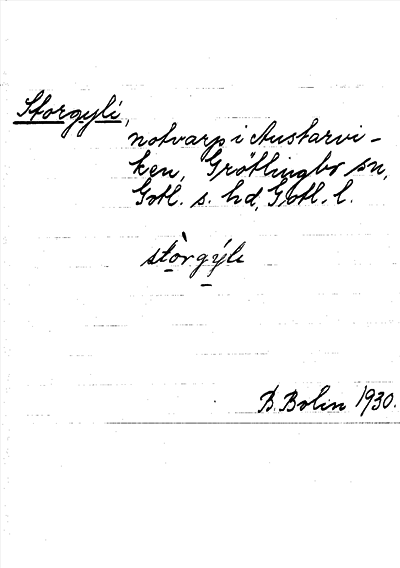 Storgyli,
notvarp i Austarvi-
ken, Grötlingbo sn,
Gotl. s. hd, Gotl. l.
stòrgýli
B. Bolin 1930.